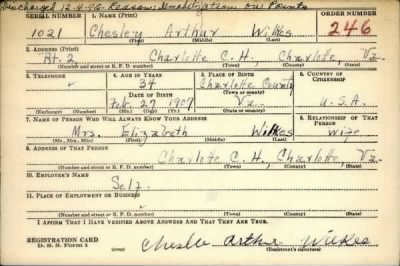 Discharged 12-4-45- Reason: Demobilization on Points
SERIAL NUMBER 1. NAME (Print) ORDER NUMBER
1021 Chesley Arthur Wilkes 246
(First) (Middle) (Last)
2. ADDRESS (Print)
Rt. 2 Charlotte C. H., Charlotte, Va.
(Number and street or R. F. D. number) (Town) (County) (State)
3. TELEPHONE 4. AGE IN YEARS 5. PLACE OF BIRTH 6. COUNTRY OF CITIZENSHIP
34 Charlotte County
DATE OF BIRTH (Town or county)
Feb. 27 1907 Va. U.S.A.
(Exchange) (Number) (Mo.) (Day) (Yr.) (State or country)
7. NAME OF PERSON WHO WILL ALWAYS KNOW YOUR ADDRESS 8. RELATIONSHIP OF THAT PERSON
Mrs. Elizabeth Wilkes Wife
(Mr., Mrs., Miss) (First) (Middle) (Last)
9. ADDRESS OF THAT PERSON
Charlotte C. H., Charlotte, Va.
(Number and street or R. F. D. number) (Town) (County) (State)
10. EMPLOYER'S NAME
Self
11. PLACE OF EMPLOYMENT OR BUSINESS
(Number and street or R. F. D. number) (Town) (County) (State)
I AFFIRM THAT I HAVE VERIFIED ABOVE ANSWERS AND THAT THEY ARE TRUE.
REGISTRATION CARD
D. S. S. Form 1 Arthur Wilkes
(Registrant's signature)